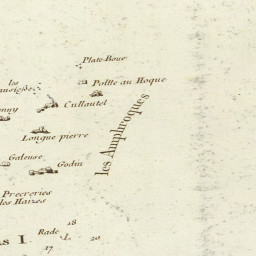 Plate-Boue
les
Politte au Hoque
Cullautel
Longue pierre
les Amphroques
Galeuse
Godin
Precreries
les Haizes
18
Rade
L.
20
17
I.